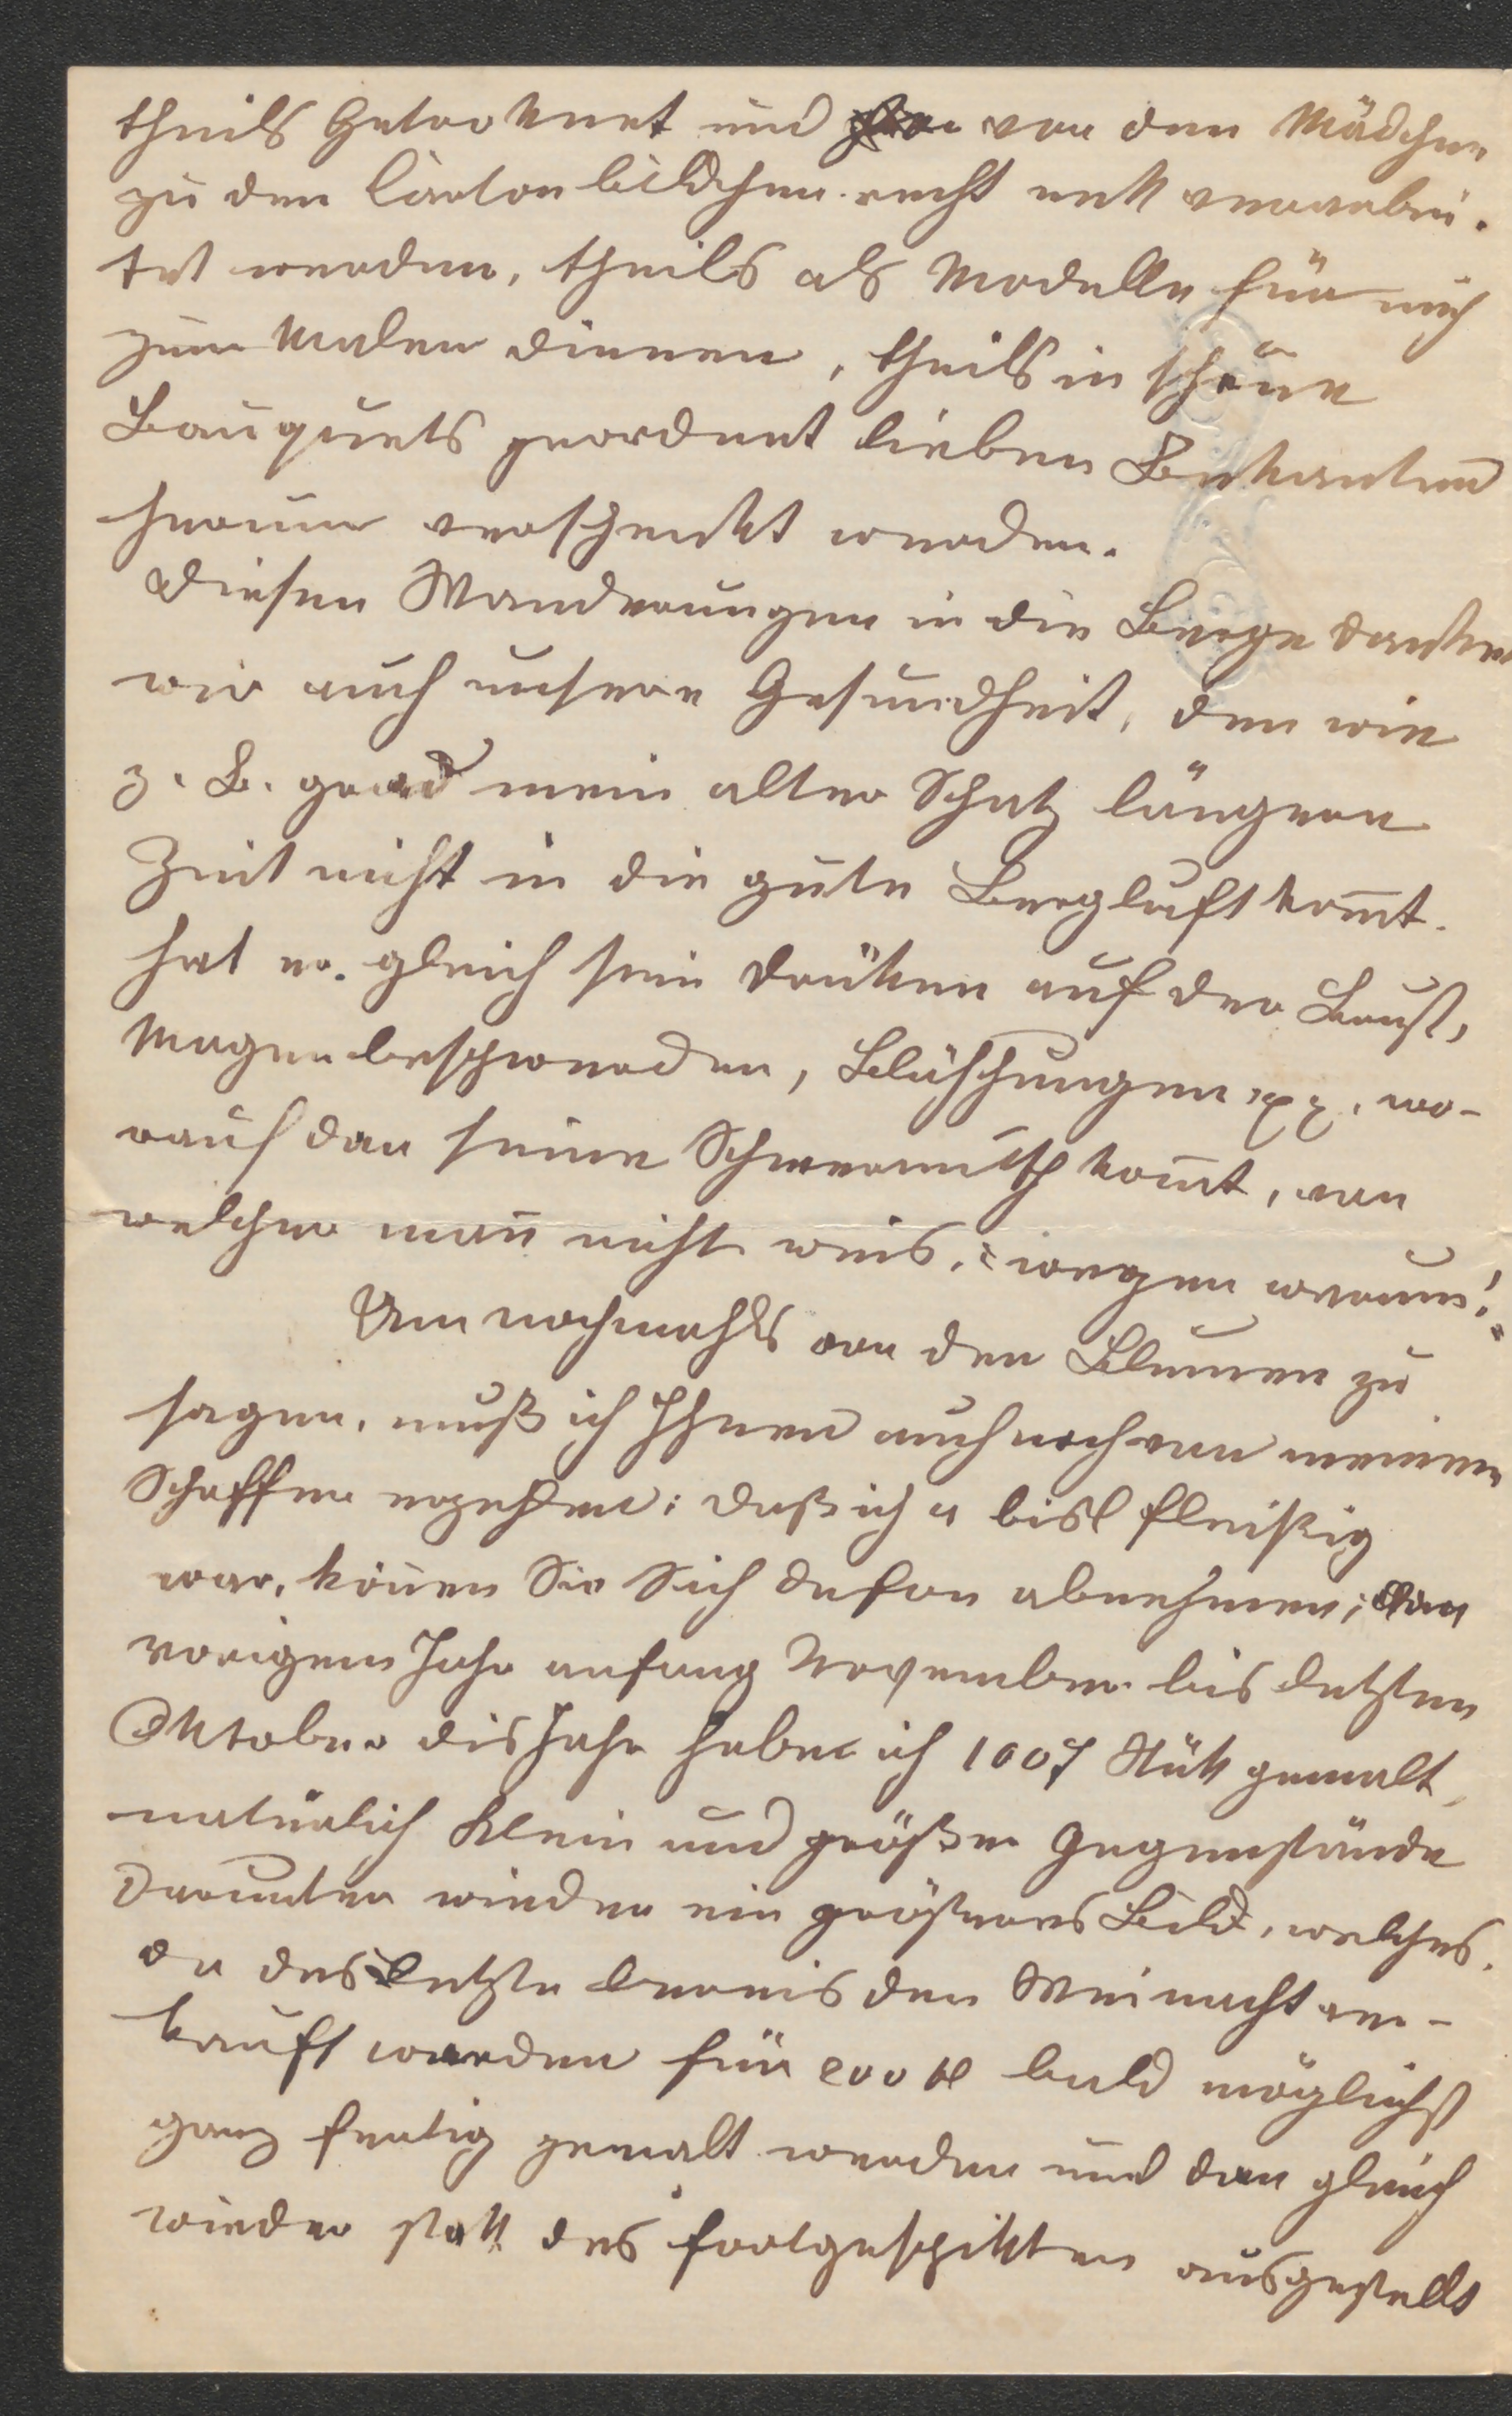 theils Getroknet und von den Mädchen
zu den Cartonbildchen recht nett verarbei-
tet werden, theils als Modelle für mich
zum Malen dienen, theils in schöne
Bauquets geordnet lieben Bekanten
herum verschenkt werden.
Diesen Wanderungen in die Berge danken
wir auch unsere Gesundheit, den wie
z. B. grad mein alter Schatz längere
Zeit nicht in die gute Bergluft kom̅t.
hat er gleich sein drüken auf der Brust,
Magenbeschwerden, Blähungen, wo-
rauf dan seine Schwermuth kom̅t, von
welcher man̅ nicht weis, wegen warum!
Um nochmahls von den Blumen zu
sagen, muß ich Ihnen auch noch von meinem
Schaffen erzehlen: daß ich a bisl fleißig
war, kön̅en Sie Sich dafon abnehmen;
vorigem Jahr anfang November bis letzten
Oktober dis Jahr habe ich 1007 Stük gemalt,
natürlich klein und größere Gegenstände
darunter wieder ein größeres Bild, welches,
da das letzte bereis den Weinacht ver-
kauft worden für 200 fl bald möglichst
ganz fertig gemalt werden und dan gleich
wieder statt des fortgeschikten ausgestellt